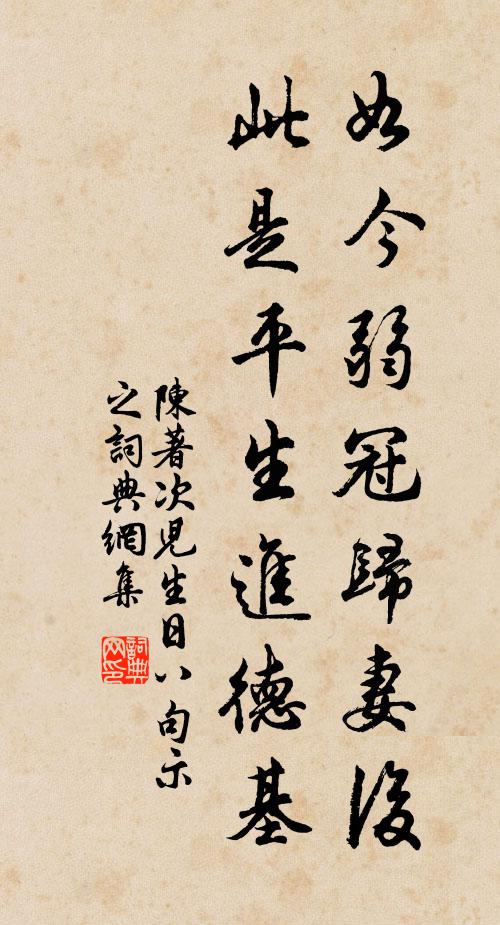 如今弱冠歸妻後
此是平生進德基
陳著次兒生日八句示
之詞典網集
詞典
网印